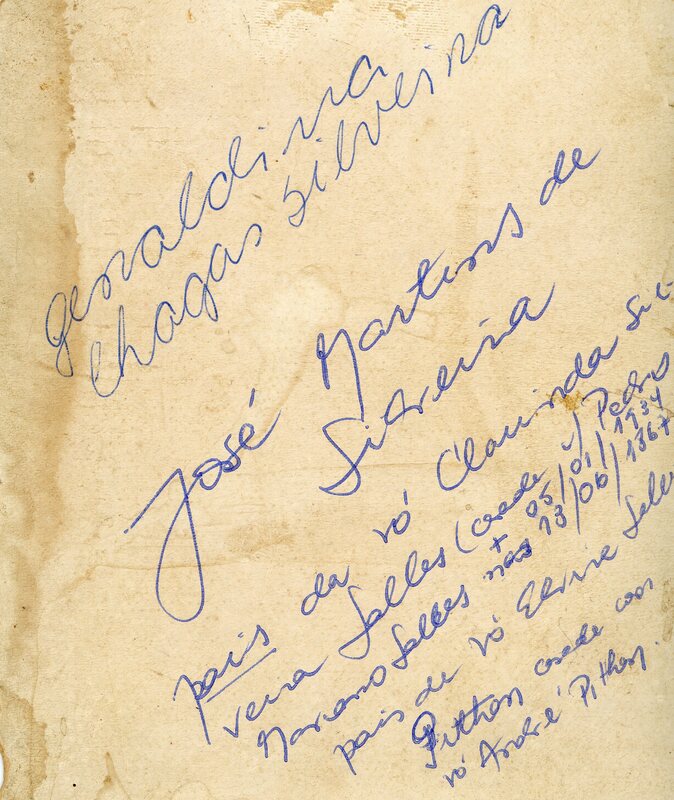 Genaldina
Chagas Silveira
José Martins de
Silveira
pais da vó Clarinda Sil-
veira Salles (casada c/ Pedro
Mariano Salles nas 13/06/1867
+ 05/01/1934
pais de vó Elvira Salles
Pithon casada com
vô André Pithon.